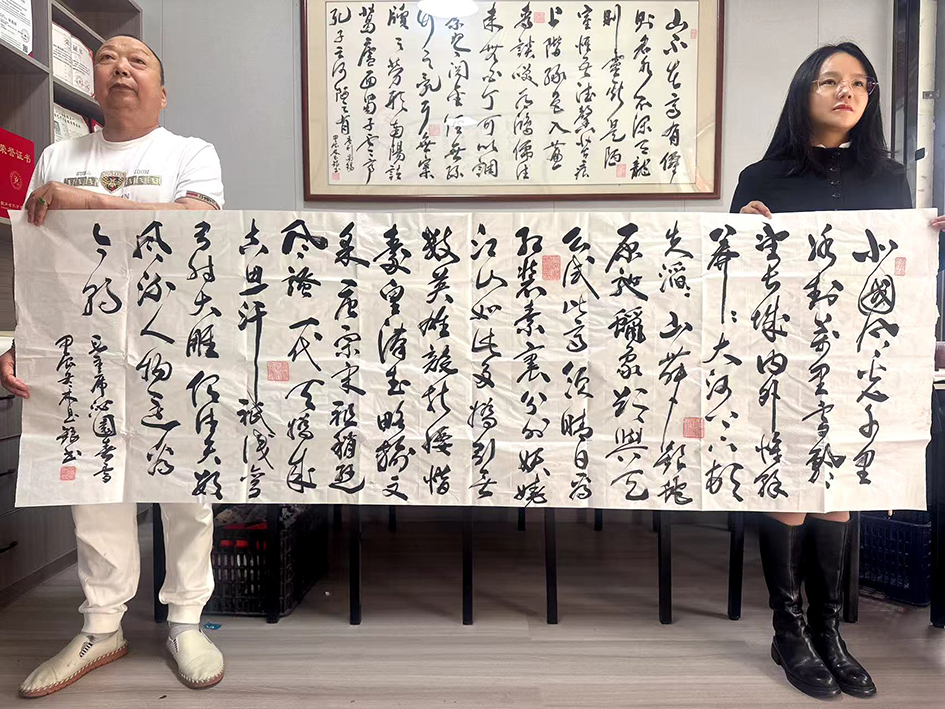 山不在高有僊
则名水不深有龙
则灵斯是陋
室惟吾德馨苔痕
上阶绿草色入帘
青谈笑有鸿儒往
来无白丁可以调
素琴阅金经无丝
竹之乱耳无案
牍之劳形南阳诸
葛庐西蜀子云亭
孔子云何陋之有
荣誉证书
北國风光千里
冰封万里雪飘
望长城内外惟馀
莽莽大河上下顿
失滔滔山舞银蛇
原驰蜡象欲与天
公试比高须晴日看
红装素裹分外妖娆
江山如此多娇引无
数英雄竞折腰惜
秦皇汉武略输文
采唐宗宋祖稍逊
风骚一代天骄成
吉思汗祇识弯
弓射大雕俱往矣数
风流人物还看
今朝
毛主席沁園春雪
甲辰